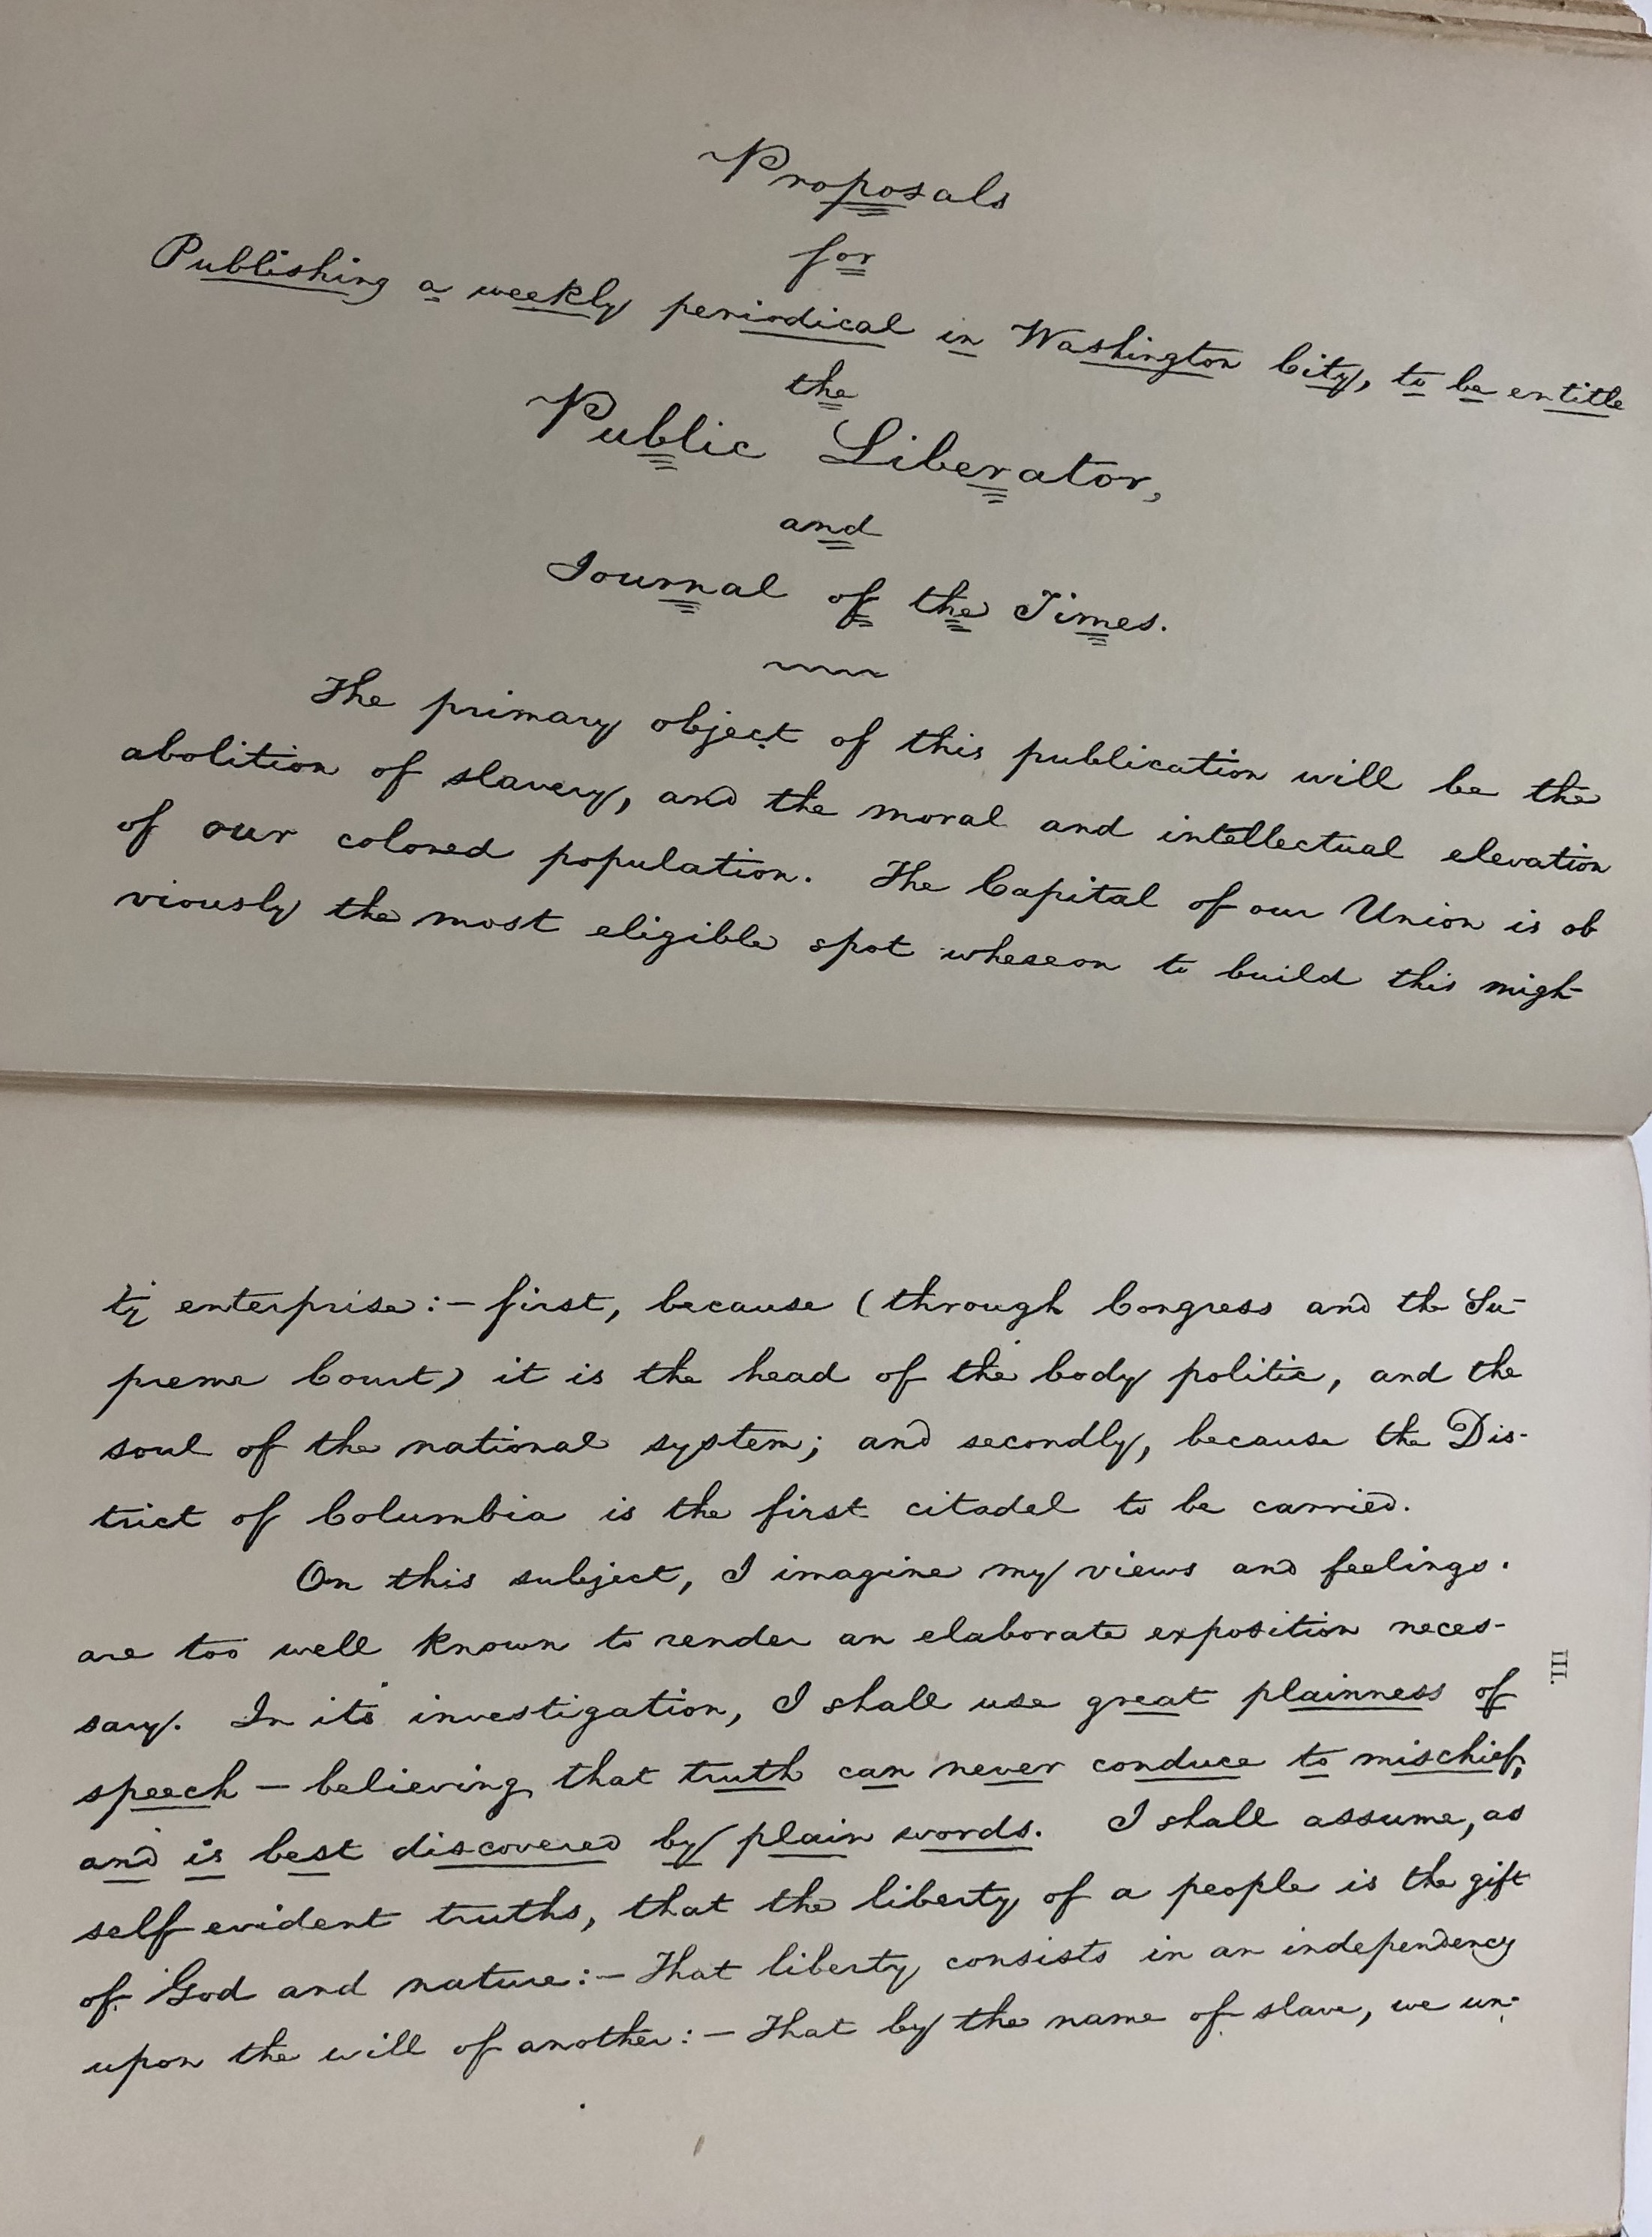 Proposals
for
Publishing a weekly periodical in Washington City, to be entitle
the
Public Liberator,
and
Journal of the Times.
The primary object of this publication will be the
abolition of slavery, and the moral and intellectual elevation
of our colored population. The Capital of our Union is ob
viously the most eligible spot whereon to build this migh-
ty enterprise:— first, because (through Congress and the Su-
preme Court) it is the head of the body politic, and the
soul of the national system; and secondly, because the Dis-
trict of Columbia is the first citadel to be carried.
On this subject, I imagine my views and feelings.
are too well known to render an elaborate exposition neces-
sary. In its investigation, I shall use great plainness of
speech — believing that truth can never conduce to mischief,
and is best discovered by plain words. I shall assume, as
self evident truths, that the liberty of a people is the gift
of God and nature:— That liberty consists in an independency
upon the will of another:— That by the name of slave, we un-
III.